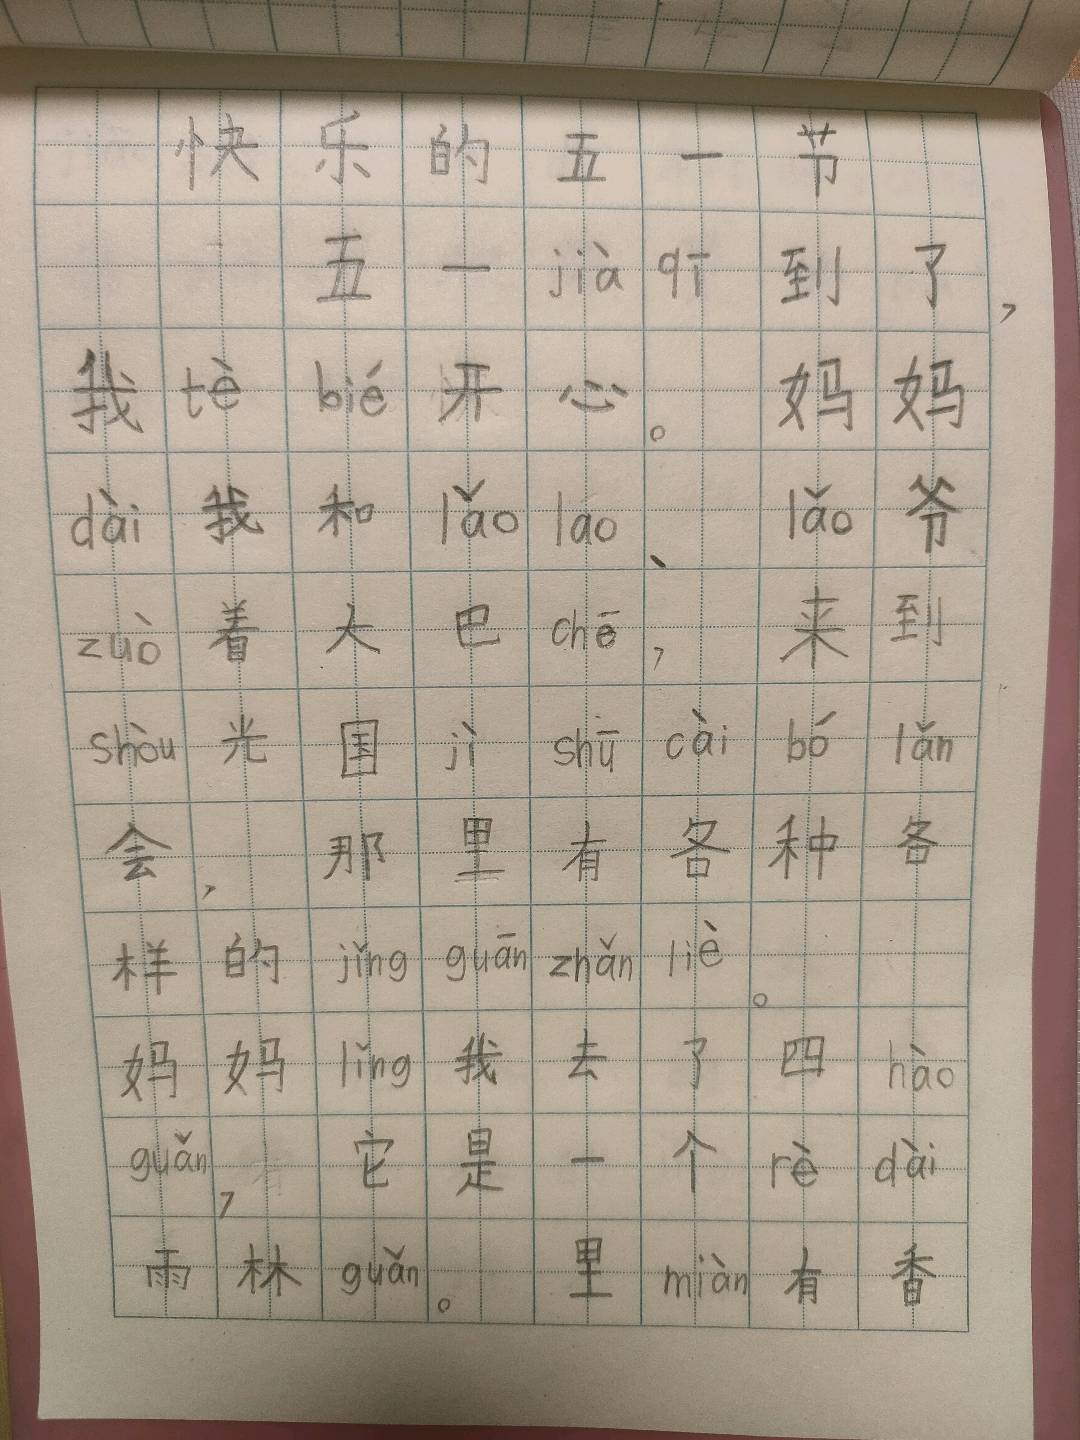 快乐的五一节
五一jià qī到了，
我tè bié开心。妈妈
dài我和lǎo lao、lǎo爷
zuò着大巴chē，来到
shòu光国jì shū cài bó lǎn
会，那里有各种各
样的jǐng guān zhǎn liè。
妈妈lǐng我去了四hào
guǎn，它是一个rè dài
雨林guǎn。里miàn有香